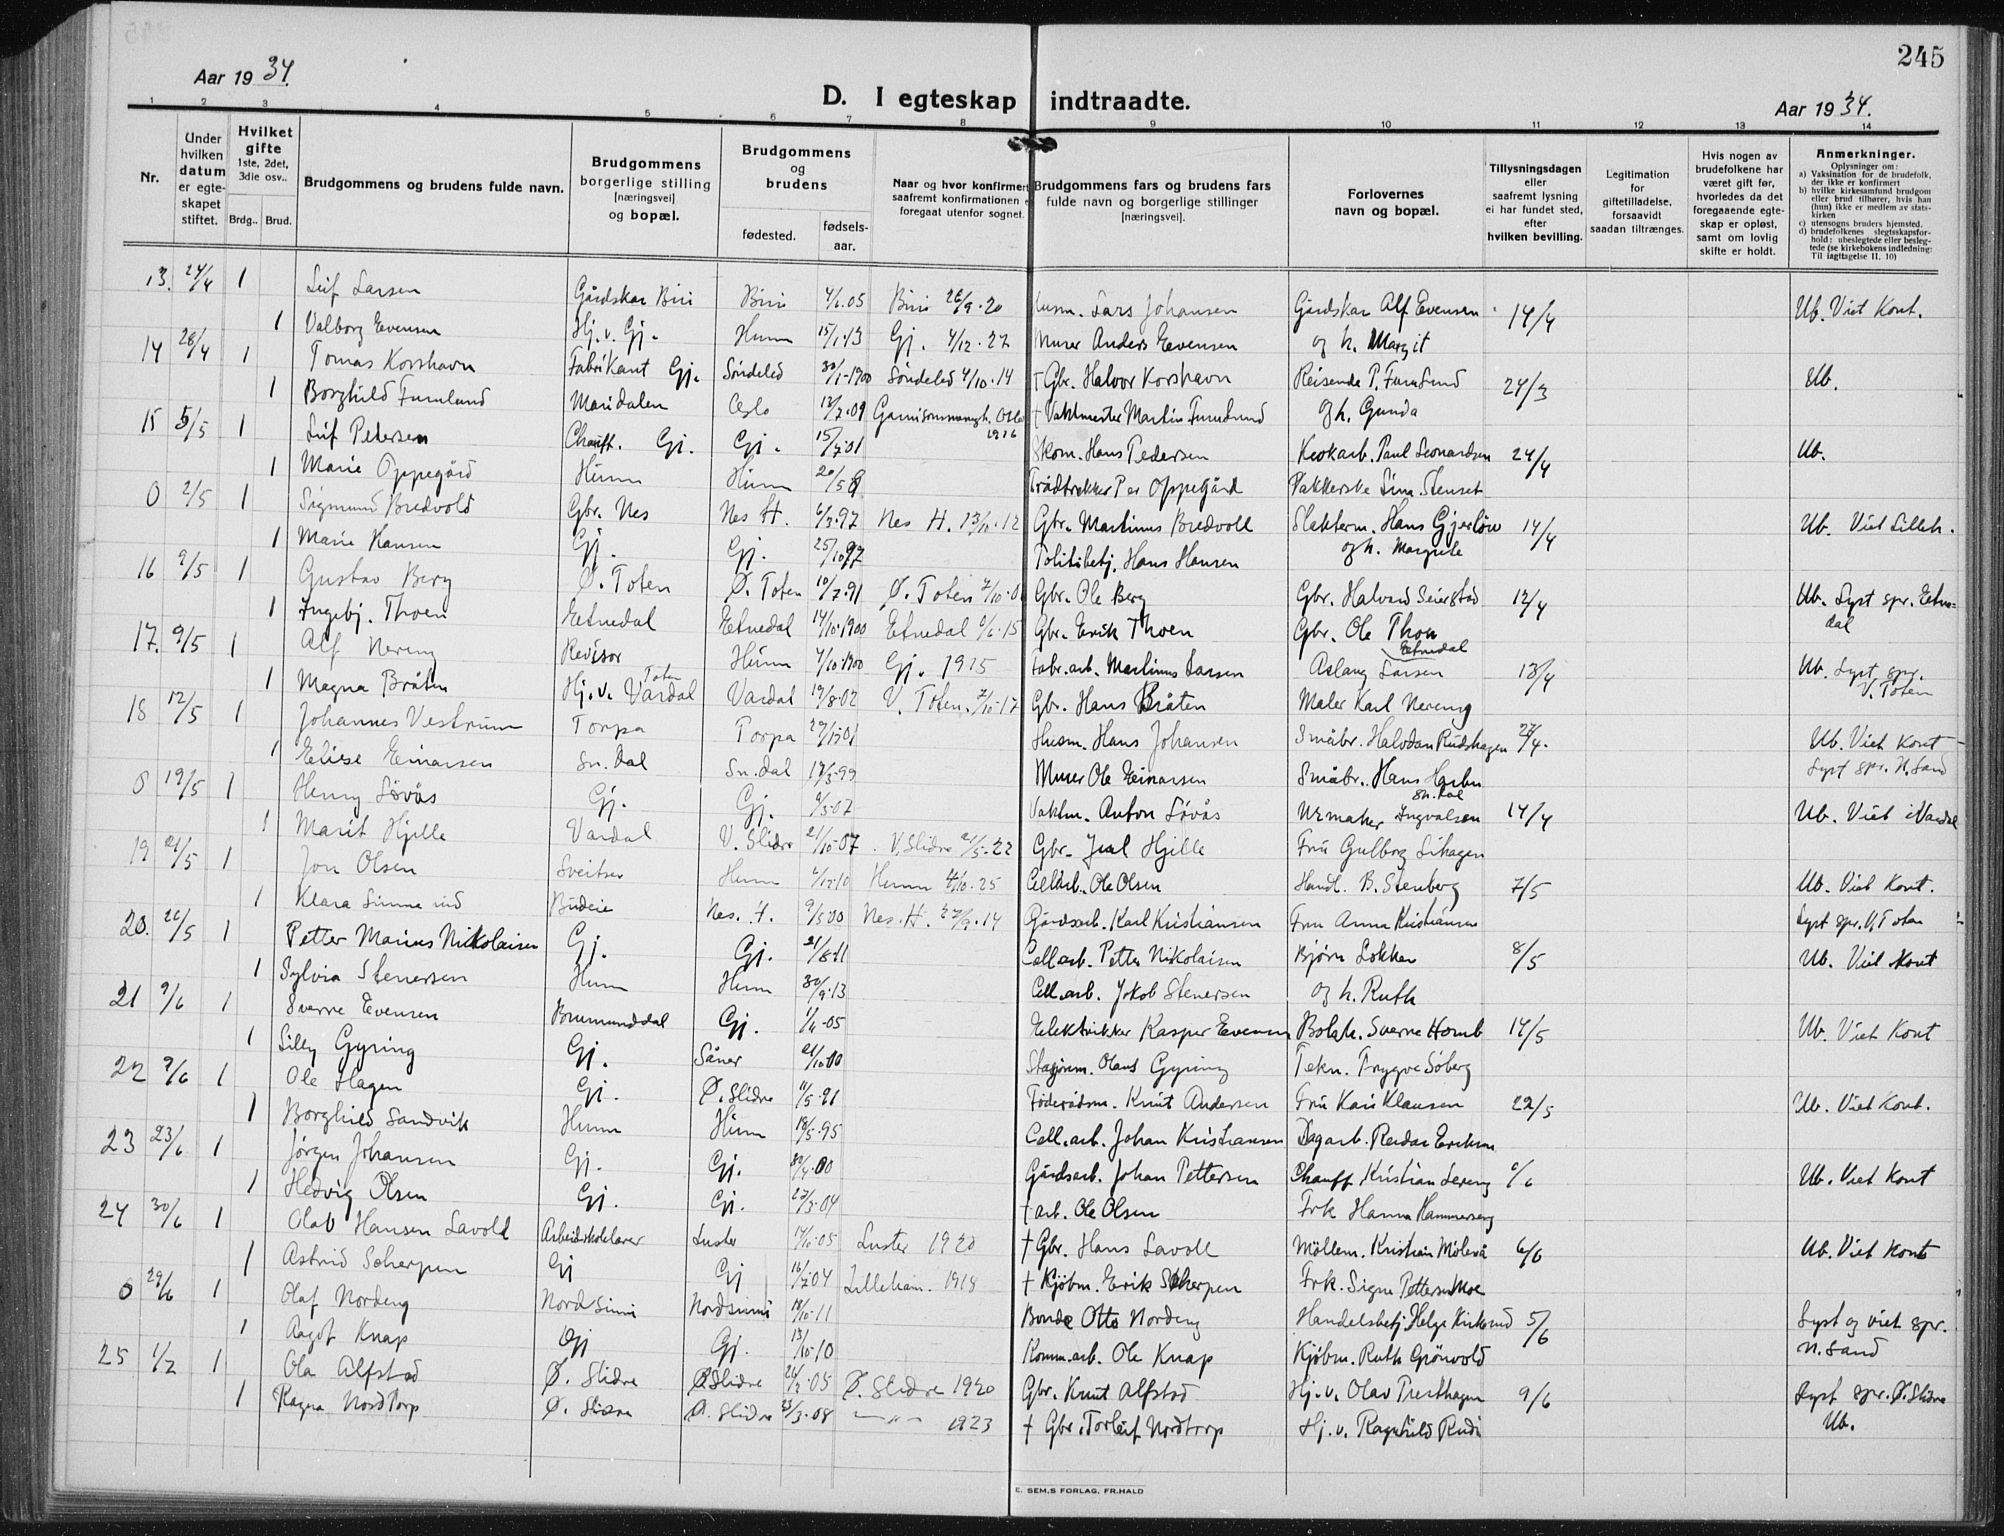 245
Aar 1934.
D. I egteskap indtraadte.
Aar 1934.
1 2 3 4 5 6 7 8 9 10 11 12 13 14
Nr.
Under hvilken datum er egteskapet stiftet.
Hvilket gifte 1ste, 2det, 3die osv..
Brdg.. Brud.
Brudgommens og brudens fulde navn.
Brudgommens borgerlige stilling [næringsvei] og bopæl.
Brudgommens og brudens
fødested. fødselsaar.
Naar og hvor konfirmert saafremt konfirmationen er foregaat utenfor sognet.
Brudgommens fars og brudens fars fulde navn og borgerlige stillinger [næringsvei].
Forlovernes navn og bopæl.
Tillysningsdagen eller saafremt lysning ei har fundet sted, efter hvilken bevilling.
Legitimation for giftetilladelse, forsaavidt saadan tiltrænges.
Hvis nogen av brudefolkene har været gift før, hvorledes da det foregaaende egteskap er opløst, samt om lovlig skifte er holdt.
Anmerkninger.
Oplysninger om:
a) Vaksination for de brudefolk, der ikke er konfirmert
b) hvilke kirkesamfund brudgom eller brud tilhører, hvis han (hun) ikke er medlem av statskirken
c) utensogns bruders hjemsted.
d) brudefolkenes slegtsskapsforhold: ubeslegtede eller beslegtede (se kirkebokens indledning: Til iagttagelse II. 10)
13. 24/4 1 Leif Larsen Gårdskar Biri Biri 4/6.05 Biri 26/9.20 Husm. Lars Johansen Gårdskar Alf Evensen 14/4 Ub. Viet Kont.
1 Valborg Evensen Hj.v. Gj. Hunn 15/1.13 Gj. 4/12.27 Murer Anders Evensen og h. Margit
14 28/4 1 Tomas Korshavn Fabrikant Gj. Søndeled 30/1-1900 Søndeled 4/10.14 † Gbr. Halvor Korshavn Reisende P. Furulund 24/3 Ub.
1 Borghild Furulund Maridalen Oslo Garnisonsmenigh. Oslo 1916 † Vaktmester Martin Furulund og h. Gunda
15 5/5 1 Leif Petersen Chauff. Gj. Gj. Skom. Hans Pedersen Krokarb. Paul Leonardsen 24/4 Ub.
1 Marie Oppegård Hunn Hunn Trådtrekker Per Oppegård Pakkerske Lina Stenset
0 2/5 1 Sigmund Bredvold Gbr. Nes Nes H. 6/3.97 Nes H. 13/10.12 Gbr. Martinus Bredvold Slakterm. Hans Gjerløw 14/4 Ub. Viet Lilleh.
1 Marie Hansen Gj. Gj. 25/10.97 Politibetj. Hans Hansen og h. Margrete
16 9/5 1 Gustav Berg Ø. Toten Ø. Toten 10/7.91 Ø. Toten Gbr. Ole Berg Gbr. Halvard Seierstad 12/4 Ub. Lyst spr. Etnedal
1 Ingebj. Thoen Etnedal Etnedal 14/10.1900 Etnedal Gbr. Erik Thoen Gbr. Ole Thon Etnedal
17. 9/5 1 Alf Nereng Revisor Hunn 4/10.1900 Gj. 1915 Fabr.arb. Martinus Larsen Aslaug Larsen 13/4 Ub. Lyst spr. V. Toten
1 Magna Bråten Hj.v. Vardal Toten Vardal 19/8.02 V. Toten. Gbr. Hans Bråten Maler Karl Nereng
18 12/5 1 Johannes Vestrum Torpa Torpa Husm. Hans Johansen Småbr. Halvdan Rudshagen Ub. Viet Kont
1 Elise Einarsen Sn. dal Sn. dal Murer Ole Einarsen Småbr. Hans Haslien Sn. dal Lyst spr. N. Land
0 19/5 1 Henry Løvås Gj. Gj. Vaktm. Anton Løvås Urmaker Ingvalsen 14/4 Ub. Viet i Vardal
1 Marit Hjelle Vardal V. Slidre 21/10-07 V. Slidre 21/5.22 Gbr. Hjelle Fru Gulborg Lihagen
19 21/5 1 Jon Olsen Sveitser Hunn Hunn 4/10.25 Cell.arb. Ole Olsen Handl. B. Stenberg 7/5 Ub. Viet Kont.
1 Klara Budeie Nes. H. 9/5 00 Nes. H. 27/9.14 Gårdsarb. Karl Kristiansen Fru Anna Kristiansen Lyst spr. V. Toten
20. 26/5 1 Petter Marius Nikolaisen Gj. Gj. 21/8.11 Cell.arb. Petter Nikolaisen Bjørn Løkken 8/5 Ub. Viet Kont
1 Sylvia Stenersen Hunn Hunn 30/9.13 Cell.arb. Jakob Stenersen og h. Ruth
21 9/6 1 Sverre Evensen Brummunddal Gj. 1/4.05 Elektriker Kasper Evensen Sverre Homb 14/5 Ub. Viet Kont
1 Lilly Gyring Gj. Såner Stasjonm. Olaus Gyring Tekn. Trygve Søberg
22 9/6 1 Ole Hagen Gj. Ø. Slidre 11/5.91 Føderådsm. Knut Andersen Fru Kari Klausen 22/5 Ub. Viet Kont.
1 Borghild Sandvik Hunn Hunn 18/5.95 Cell.arb. Johan Kristiansen Dagarb. Reidar Eriksen
23 23/6 1 Jørgen Johansen Gj. Gj. 30/4.00 Gårdsarb. Johan Pettersen Chauff Kristian Lereng Ub. Viet Kont
1 Hedvig Olsen Gj. Gj. 27/3.04 † arb. Ole Olsen Frk Hanna Hammerseng
24 30/6 1 Olav Hansen Lavold Arbeidsskolelærer Luster Luster 1920 † Gbr. Hans Lavoll Møllem. Kristian 6/6 Ub. Viet Kont
1 Astrid Scherpen Gj Gj Lilleham. 1918 † Kjøbm. Erik Scherpen Frk. Signe Pettersen Moe
0 29/6 1 Olaf Nordeng Nordsinni Nordsinni 18/10-11 Bonde Otto Nordeng Handelsbetj. Helge Kirkerud 5/6 Lyst og viet spr. N. Land
1 Aagot Knap Gj Gj. 13/10-10 Komm.arb. Ole Knap Kjøbm. Ruth Grönvold
25 1/7 1 Ola Alfstad Ø. Slidre Ø. Slidre 26/2.05 Ø. Slidre 1920 Gbr. Knut Alfstad Hj.v. Olav Presthagen 9/6 Lyst spr. Ø. Slidre
1 Ragna Nordtorp Ø. Slidre Ø. Slidre 23/3.08 — " — 1923 † Gbr. Torleif Nordtorp Hj.v. Ragnhild Rudi Ub.
E. SEM,S FORLAG, FR.HALD